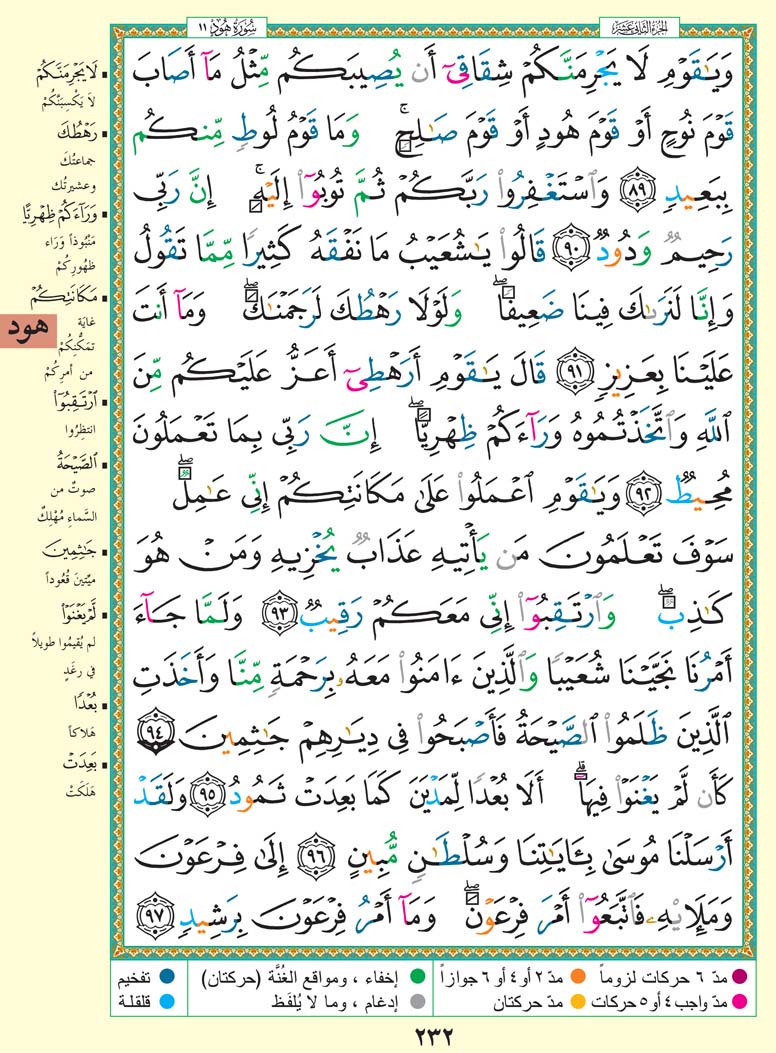 سُورَةُ هُودٍ ١١
الجزء الثاني عشر
وَيَٰقَوْمِ لَا يَجْرِمَنَّكُمْ شِقَاقِىٓ أَن يُصِيبَكُم مِّثْلُ مَآ أَصَابَ
قَوْمَ نُوحٍ أَوْ قَوْمَ هُودٍ أَوْ قَوْمَ صَٰلِحٍ ۚ وَمَا قَوْمُ لُوطٍ مِّنكُم
بِبَعِيدٍ ٨٩ وَٱسْتَغْفِرُوا۟ رَبَّكُمْ ثُمَّ تُوبُوٓا۟ إِلَيْهِ ۚ إِنَّ رَبِّى
رَحِيمٌ وَدُودٌ ٩٠ قَالُوا۟ يَٰشُعَيْبُ مَا نَفْقَهُ كَثِيرًا مِّمَّا تَقُولُ
وَإِنَّا لَنَرَىٰكَ فِينَا ضَعِيفًا ۖ وَلَوْلَا رَهْطُكَ لَرَجَمْنَٰكَ ۖ وَمَآ أَنتَ
عَلَيْنَا بِعَزِيزٍ ٩١ قَالَ يَٰقَوْمِ أَرَهْطِىٓ أَعَزُّ عَلَيْكُم مِّنَ
ٱللَّهِ وَٱتَّخَذْتُمُوهُ وَرَآءَكُمْ ظِهْرِيًّا ۖ إِنَّ رَبِّى بِمَا تَعْمَلُونَ
مُحِيطٌ ٩٢ وَيَٰقَوْمِ ٱعْمَلُوا۟ عَلَىٰ مَكَانَتِكُمْ إِنِّى عَٰمِلٌ ۖ
سَوْفَ تَعْلَمُونَ مَن يَأْتِيهِ عَذَابٌ يُخْزِيهِ وَمَنْ هُوَ
كَٰذِبٌ ۖ وَٱرْتَقِبُوٓا۟ إِنِّى مَعَكُمْ رَقِيبٌ ٩٣ وَلَمَّا جَآءَ
أَمْرُنَا نَجَّيْنَا شُعَيْبًا وَٱلَّذِينَ ءَامَنُوا۟ مَعَهُۥ بِرَحْمَةٍ مِّنَّا وَأَخَذَتِ
ٱلَّذِينَ ظَلَمُوا۟ ٱلصَّيْحَةُ فَأَصْبَحُوا۟ فِى دِيَٰرِهِمْ جَٰثِمِينَ ٩٤
كَأَن لَّمْ يَغْنَوْا۟ فِيهَآ ۗ أَلَا بُعْدًا لِّمَدْيَنَ كَمَا بَعِدَتْ ثَمُودُ ٩٥ وَلَقَدْ
أَرْسَلْنَا مُوسَىٰ بِـَٔايَٰتِنَا وَسُلْطَٰنٍ مُّبِينٍ ٩٦ إِلَىٰ فِرْعَوْنَ
وَمَلَإِي۟هِۦ فَٱتَّبَعُوٓا۟ أَمْرَ فِرْعَوْنَ ۖ وَمَآ أَمْرُ فِرْعَوْنَ بِرَشِيدٍ ٩٧
لَا يَجْرِمَنَّكُمْ
لاَ يَكْسِبَنَّكُمْ
رَهْطُكَ
جماعتُكَ
وعشيرتُك
وَرَآءَكُمْ ظِهْرِيًّا
مَنْبُوذاً وَرَاء
ظهُورِكُمْ
مَكَانَتِكُمْ
غاية
تمَكُّنِكُمْ
من أمرِكُمْ
ٱرْتَقِبُوٓا۟
انتظِرُوا
ٱلصَّيْحَةُ
صوتٌ من
السَّماء مُهْلِكٌ
جَٰثِمِينَ
ميِّتينَ قُعُوداً
لَّمْ يَغْنَوْا۟
لم يُقيمُوا طويلاً
في رغَدٍ
بُعْدًا
هَلاكاً
بَعِدَتْ
هَلَكَتْ
هود
مدّ ٦ حركات لزوماً
مدّ ٢ أو ٤ أو ٦ جوازاً
إخفاء ، ومواقع الغُنَّة (حركتان)
تفخيم
مدّ واجب ٤ أو ٥ حركات
مدّ حركتان
إدغام ، وما لا يُلفَظ
قلقلة
٢٣٢